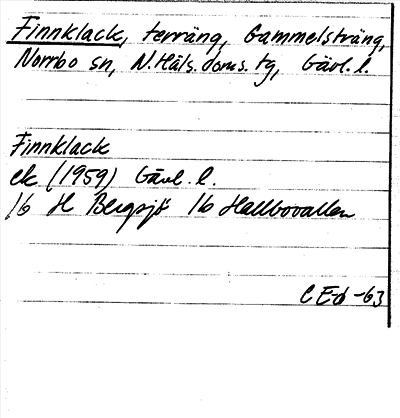 Finnklack, terräng, Gammelsträng,
Norrbo sn, N. Häls. doms. tg, Gävl. l.
Finnklack
ek (1959) Gävl. l.
16 H Bergsjö 16 Hallbovallen
C E-d -63